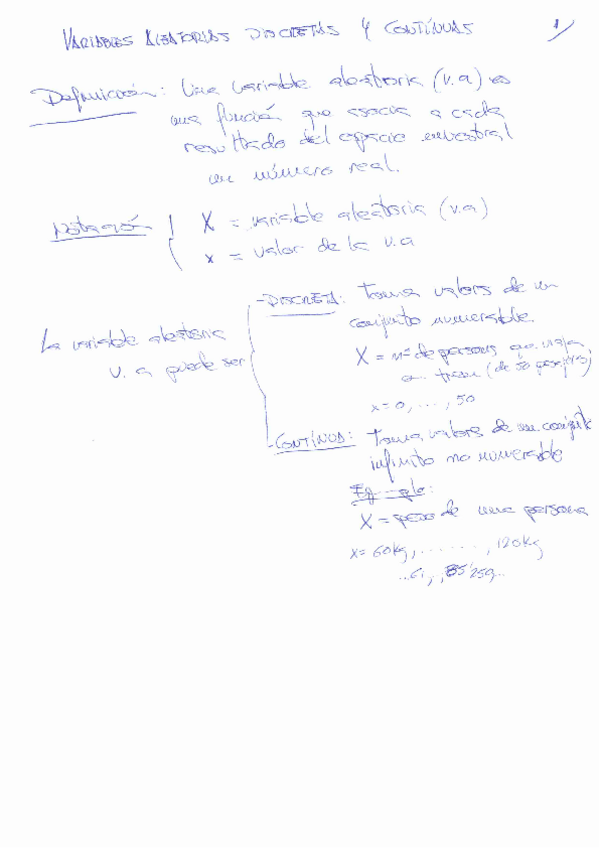 VARIABLES ALEATORIAS DISCRETAS Y CONTÍNUAS 1/
Definición: Una variable aleatoria (v.a) es
una función que asocia a cada
resultado del espacio muestral
un número real.
Notación { X = variable aleatoria (v.a)
x = valor de la v.a
La variable aleatoria
v. a puede ser
- DISCRETA: Toma valores de un
conjunto numerable.
X = nº de personas que viajan
en tren (de 50 pasajeros)
x = 0, ..., 50
- CONTÍNUA: Toma valores de un conjunto
infinito no numerable
Ejemplo:
X = peso de una persona
x = 60kg, ......., 120kg